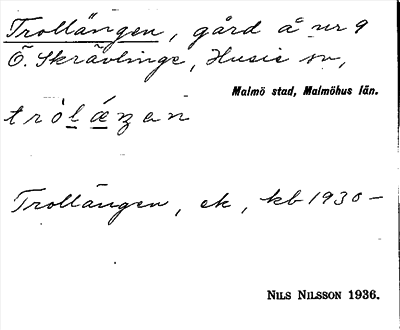 Trollängen, gård å nr 9
Ö. Skrävlinge, Husie sn,
Malmö stad, Malmöhus län.
Trollängen, ek, kb 1930–
NILS NILSSON 1936.